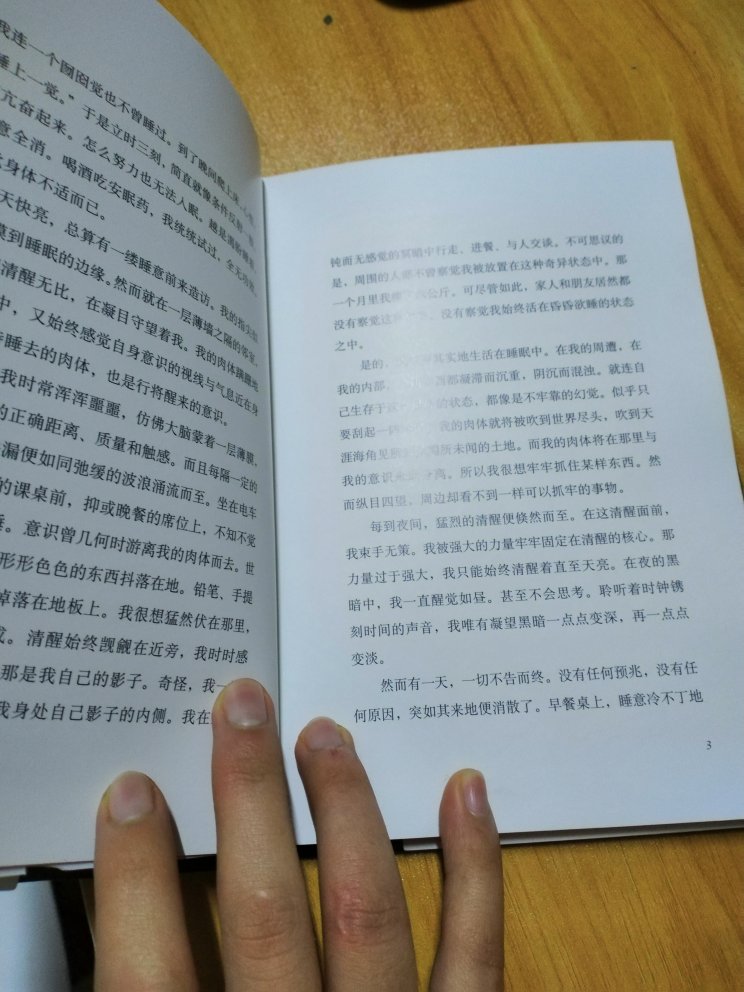 我连一个囫囵觉也不曾睡过。到了晚间爬上床，心想
睡上一觉。"于是立时三刻，简直就像条件反射一般，
亢奋起来。怎么努力也无法入眠。越是
意全消。喝酒吃安眠药，我统统试过，全无功效。
身体不适而已。
天快亮，总算有一缕睡意前来造访。我的指尖似
摸到睡眠的边缘。然而就在一层薄墙之隔的邻室，
清醒无比，在凝目守望着我。我的肉体蹒跚地
中，又始终感觉自身意识的视线与气息近在身
睡去的肉体，也是行将醒来的意识。
我时常浑浑噩噩，仿佛大脑蒙着一层薄膜，
的正确距离、质量和触感。而且每隔一定的
漏便如同弛缓的波浪涌流而至。坐在电车
的课桌前，抑或晚餐的席位上，不知不觉
。意识曾几何时游离我的肉体而去。世
形形色色的东西抖落在地。铅笔、手提
掉落在地板上。我很想猛然伏在那里，
。清醒始终觊觎在近旁，我时时感
那是我自己的影子。奇怪，我
我身处自己影子的内侧。我在
钝而无感觉的冥暗中行走、进餐、与人交谈。不可思议的
是，周围的人都不曾察觉我被放置在这种奇异状态中。那
一个月里我 六公斤。可尽管如此，家人和朋友居然都
没有察觉这 、没有察觉我始终活在昏昏欲睡的状态
之中。
是的， 其实地生活在睡眠中。在我的周遭，在
我的内部， 西都凝滞而沉重，阴沉而混浊。就连自
己生存于这 的状态，都像是不牢靠的幻觉。似乎只
要刮起一 我的肉体就将被吹到世界尽头，吹到天
涯海角见所 闻所未闻的土地。而我的肉体将在那里与
我的意识永 身离。所以我很想牢牢抓住某样东西。然
而纵目四望，周边却看不到一样可以抓牢的事物。
每到夜间，猛烈的清醒便倏然而至。在这清醒面前，
我束手无策。我被强大的力量牢牢固定在清醒的核心。那
力量过于强大，我只能始终清醒着直至天亮。在夜的黑
暗中，我一直醒觉如昼。甚至不会思考。聆听着时钟镌
刻时间的声音，我唯有凝望黑暗一点点变深，再一点点
变淡。
然而有一天，一切不告而终。没有任何预兆，没有任
何原因，突如其来地便消散了。早餐桌上，睡意冷不丁地
3